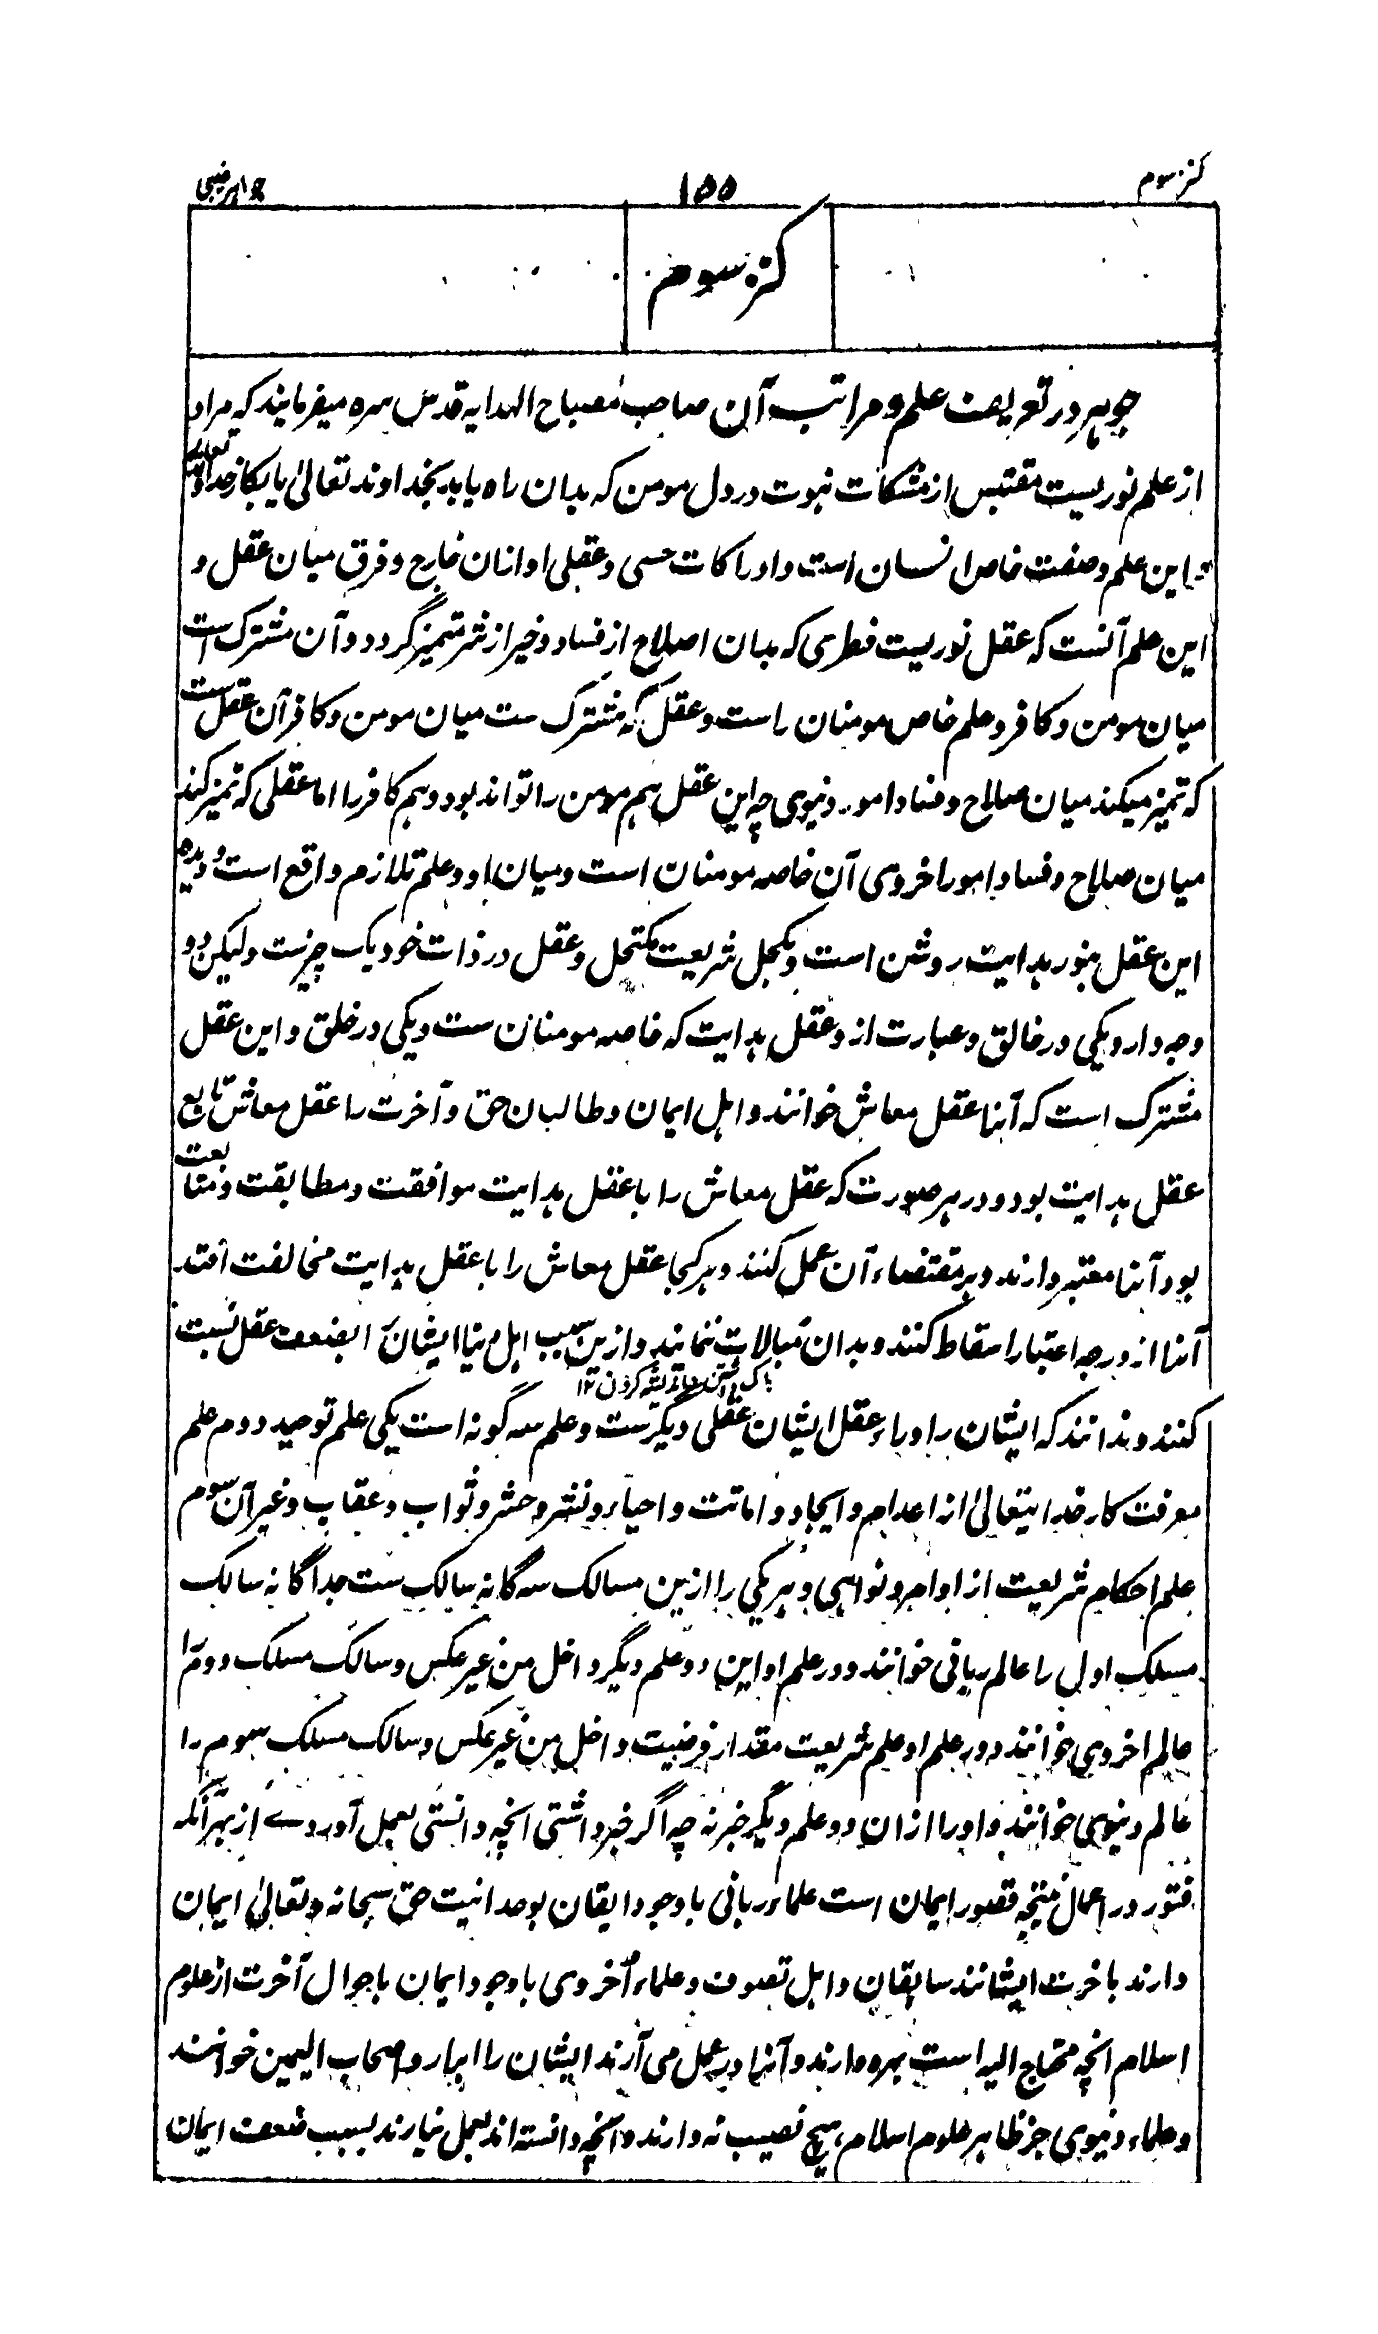 کنز سوم
۱۵۵
جواهر غیبی
کنز سوم
جوهر در تعریف علم و مراتب آن صاحب مصباح الهدایه قدس سره میفرمایند که مراد
از علم نوریست مقتبس از مشکات نبوت در دل مومن که بدان راه یابد بخداوند تعالیٰ یا بکار خداوند تعالیٰ
و این علم وصفت خاص انسان است و ادراکات حسی و عقلی او ازان خارج و فرق میان عقل و
این علم آنست که عقل نوریست فطری که بدان اصلاح از فساد و خیر از شر متمیز گردد و آن مشترک است
میان مومن و کافر و علم خاص مومنان راست و عقل که مشترک ست میان مومن و کافر آن عقل ست
که تمیز میکند میان صلاح و فساد امور دنیوی چه این عقل هم مومن را تواند بود و هم کافر را اما عقلی که تمیز کند
میان صلاح و فساد امور اخروی آن خاصه مومنان است و میان او و علم تلازم واقع است و دیده
این عقل بنور هدایت روشن است و بکحل شریعت مکتحل و عقل در ذات خود یک چیزست ولیکن دو
وجه دارد یکی در خالق و عبارت از و عقل هدایت که خاصه مومنان ست و یکی در خلق و این عقل
مشترک است که آنرا عقل معاش خوانند و اهل ایمان و طالبان حق و آخرت را عقل معاش تابع
عقل هدایت بود و در هر صورت که عقل معاش را با عقل هدایت موافقت و مطابقت و متابعت
بود آنرا معتبر دارند و بر مقتضاء آن عمل کنند و هر کجا عقل معاش را با عقل هدایت مخالفت افتد
آنرا از درجه اعتبار اسقاط کنند و بدان مبالات ننمایند و ازین سبب اهل دنیا ایشان را بضعف عقل نسبت
کنند و ندانند که ایشان را وراء عقل ایشان عقلی دیگرست و علم سه گونه است یکی علم توحید دوم علم
معرفت کار خدایتعالیٰ از اعدام و ایجاد و اماتت و احیاء و نشر و حشر و ثواب و عقاب و غیر آن سوم
علم احکام شریعت از اوامر و نواهی و هر یکی را ازین مسالک سه گانه سالک ست جداگانه سالک
مسلک اول را عالم ربانی خوانند و در علم او این دو علم دیگر داخل من غیر عکس و سالک مسلک دوم را
عالم اخروی خوانند و در علم او علم شریعت مقدار فرضیت داخل من غیر عکس و سالک مسلک سوم را
عالم دنیوی خوانند و او را ازان دو علم دیگر خبر نه چه اگر خبر داشتی انچه دانستی بعمل آوردے از بهر آنکه
فتور در اعمال نتیجه قصور ایمان است علماء ربانی با وجود ایقان بوحدانیت حق سبحانه و تعالیٰ ایمان
دارند بآخرت ایشانند سابقان و اهل تصوف و علماء اخروی با وجود ایمان باحوال آخرت از علوم
اسلام انچه محتاج الیه است بهره دارند و آنرا در عمل می آرند ایشان را ابرار و اصحاب الیمین خوانند
و علماء دنیوی جز ظاهر علوم اسلام هیچ نصیب نه دارند و آنچه دانسته اند بعمل نیارند بسبب ضعف ایمان